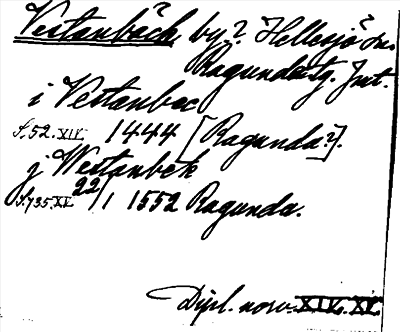 Vestanbäck by? Hellesjö sn.
Ragunda tg. Jmt.
i Vestanbec
S.52.XIV. 1444 [Ragunda?].
j Westanbek
S.735.XV. 22/1 1552 Ragunda.
Dipl. norv. XIV. XV.